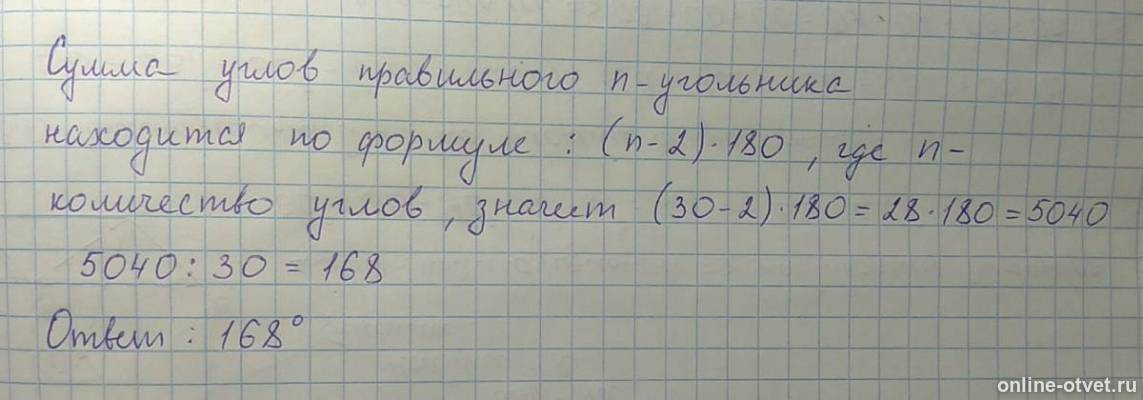 Сумма углов правильного n-угольника
находится по формуле : (n-2)·180, где n-
количество углов, значит (30-2)·180=28·180=5040
5040:30=168
Ответ: 168°
online-otvet.ru